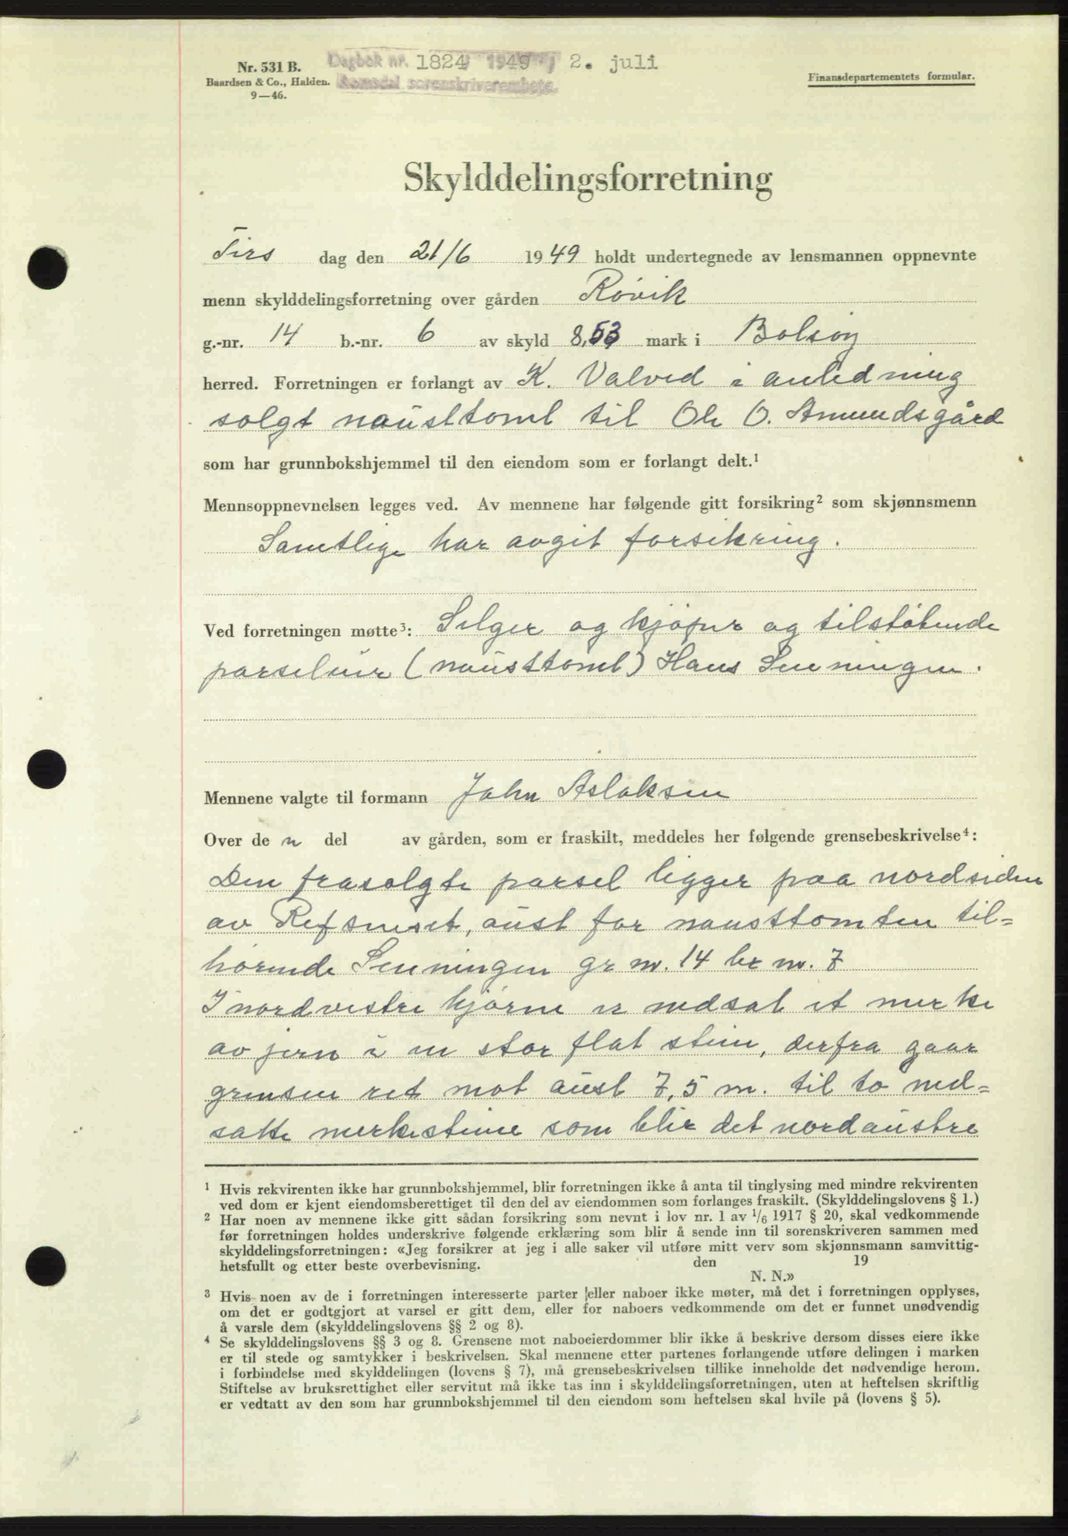 Nr. 531 B.
Baardsen & Co., Halden.
9—46.
Dagbok nr. 1824 1949 2. juli
Romsdal sorenskriverembete.
Finansdepartementets formular.
Skylddelingsforretning
Tirs dag den 21/6 1949 holdt undertegnede av lensmannen oppnevnte
menn skylddelingsforretning over gården Róvik
g.-nr. 14 b.-nr. 6 av skyld 8,53 mark i Bolsøy
herred. Forretningen er forlangt av K. Valved i anledning
solgt nausttomt til Ole O. Amundsgård
som har grunnbokshjemmel til den eiendom som er forlangt delt.¹
Mennsoppnevnelsen legges ved. Av mennene har følgende gitt forsikring² som skjønnsmenn
Samtlige har avgit forsikring.
Ved forretningen møtte³: Selger og kjøper og tilstøtende
parseleier (nausttomt) Hans Senningen.
Mennene valgte til formann John Aslaksen
Over de n del av gården, som er fraskilt, meddeles her følgende grensebeskrivelse⁴:
Den frasolgte parsel ligger paa nordsiden
av Refsneset, aust for nausttomten til=
hørende Senningen gr nr. 14 br nr. 7
I nordvestre hjørne er nedsat et merke
av jern i en stor flat stein, derfra gaar
grensen ret mot aust 7,5 m. til to ned=
satte merkesteine som blir det nordaustre
¹ Hvis rekvirenten ikke har grunnbokshjemmel, blir forretningen ikke å anta til tinglysing med mindre rekvirenten
ved dom er kjent eiendomsberettiget til den del av eiendommen som forlanges fraskilt. (Skylddelingslovens § 1.)
² Har noen av mennene ikke gitt sådan forsikring som nevnt i lov nr. 1 av 1/6 1917 § 20, skal vedkommende
før forretningen holdes underskrive følgende erklæring som blir å sende inn til sorenskriveren sammen med
skylddelingsforretningen: «Jeg forsikrer at jeg i alle saker vil utføre mitt verv som skjønnsmann samvittig-
hetsfullt og etter beste overbevisning. den 19
N. N.»
³ Hvis noen av de i forretningen interesserte parter eller naboer ikke møter, må det i forretningen opplyses,
om det er godtgjort at varsel er gitt dem, eller for naboers vedkommende om det er funnet unødvendig
å varsle dem (skylddelingslovens §§ 2 og 8).
⁴ Se skylddelingslovens §§ 3 og 8. Grensene mot naboeierdommer blir ikke å beskrive dersom disses eiere ikke
er til stede og samtykker i beskrivelsen. Skal mennene etter partenes forlangende utføre delingen i marken
i forbindelse med skylddelingen (lovens § 7), må grensebeskrivelsen tillike inneholde det nødvendige herom.
Stiftelse av bruksrettighet eller servitut må ikke tas inn i skylddelingsforretningen, uten at heftelsen skriftlig
er vedtatt av den som har grunnbokshjemmel til den eiendom som heftelsen skal hvile på (lovens § 5).